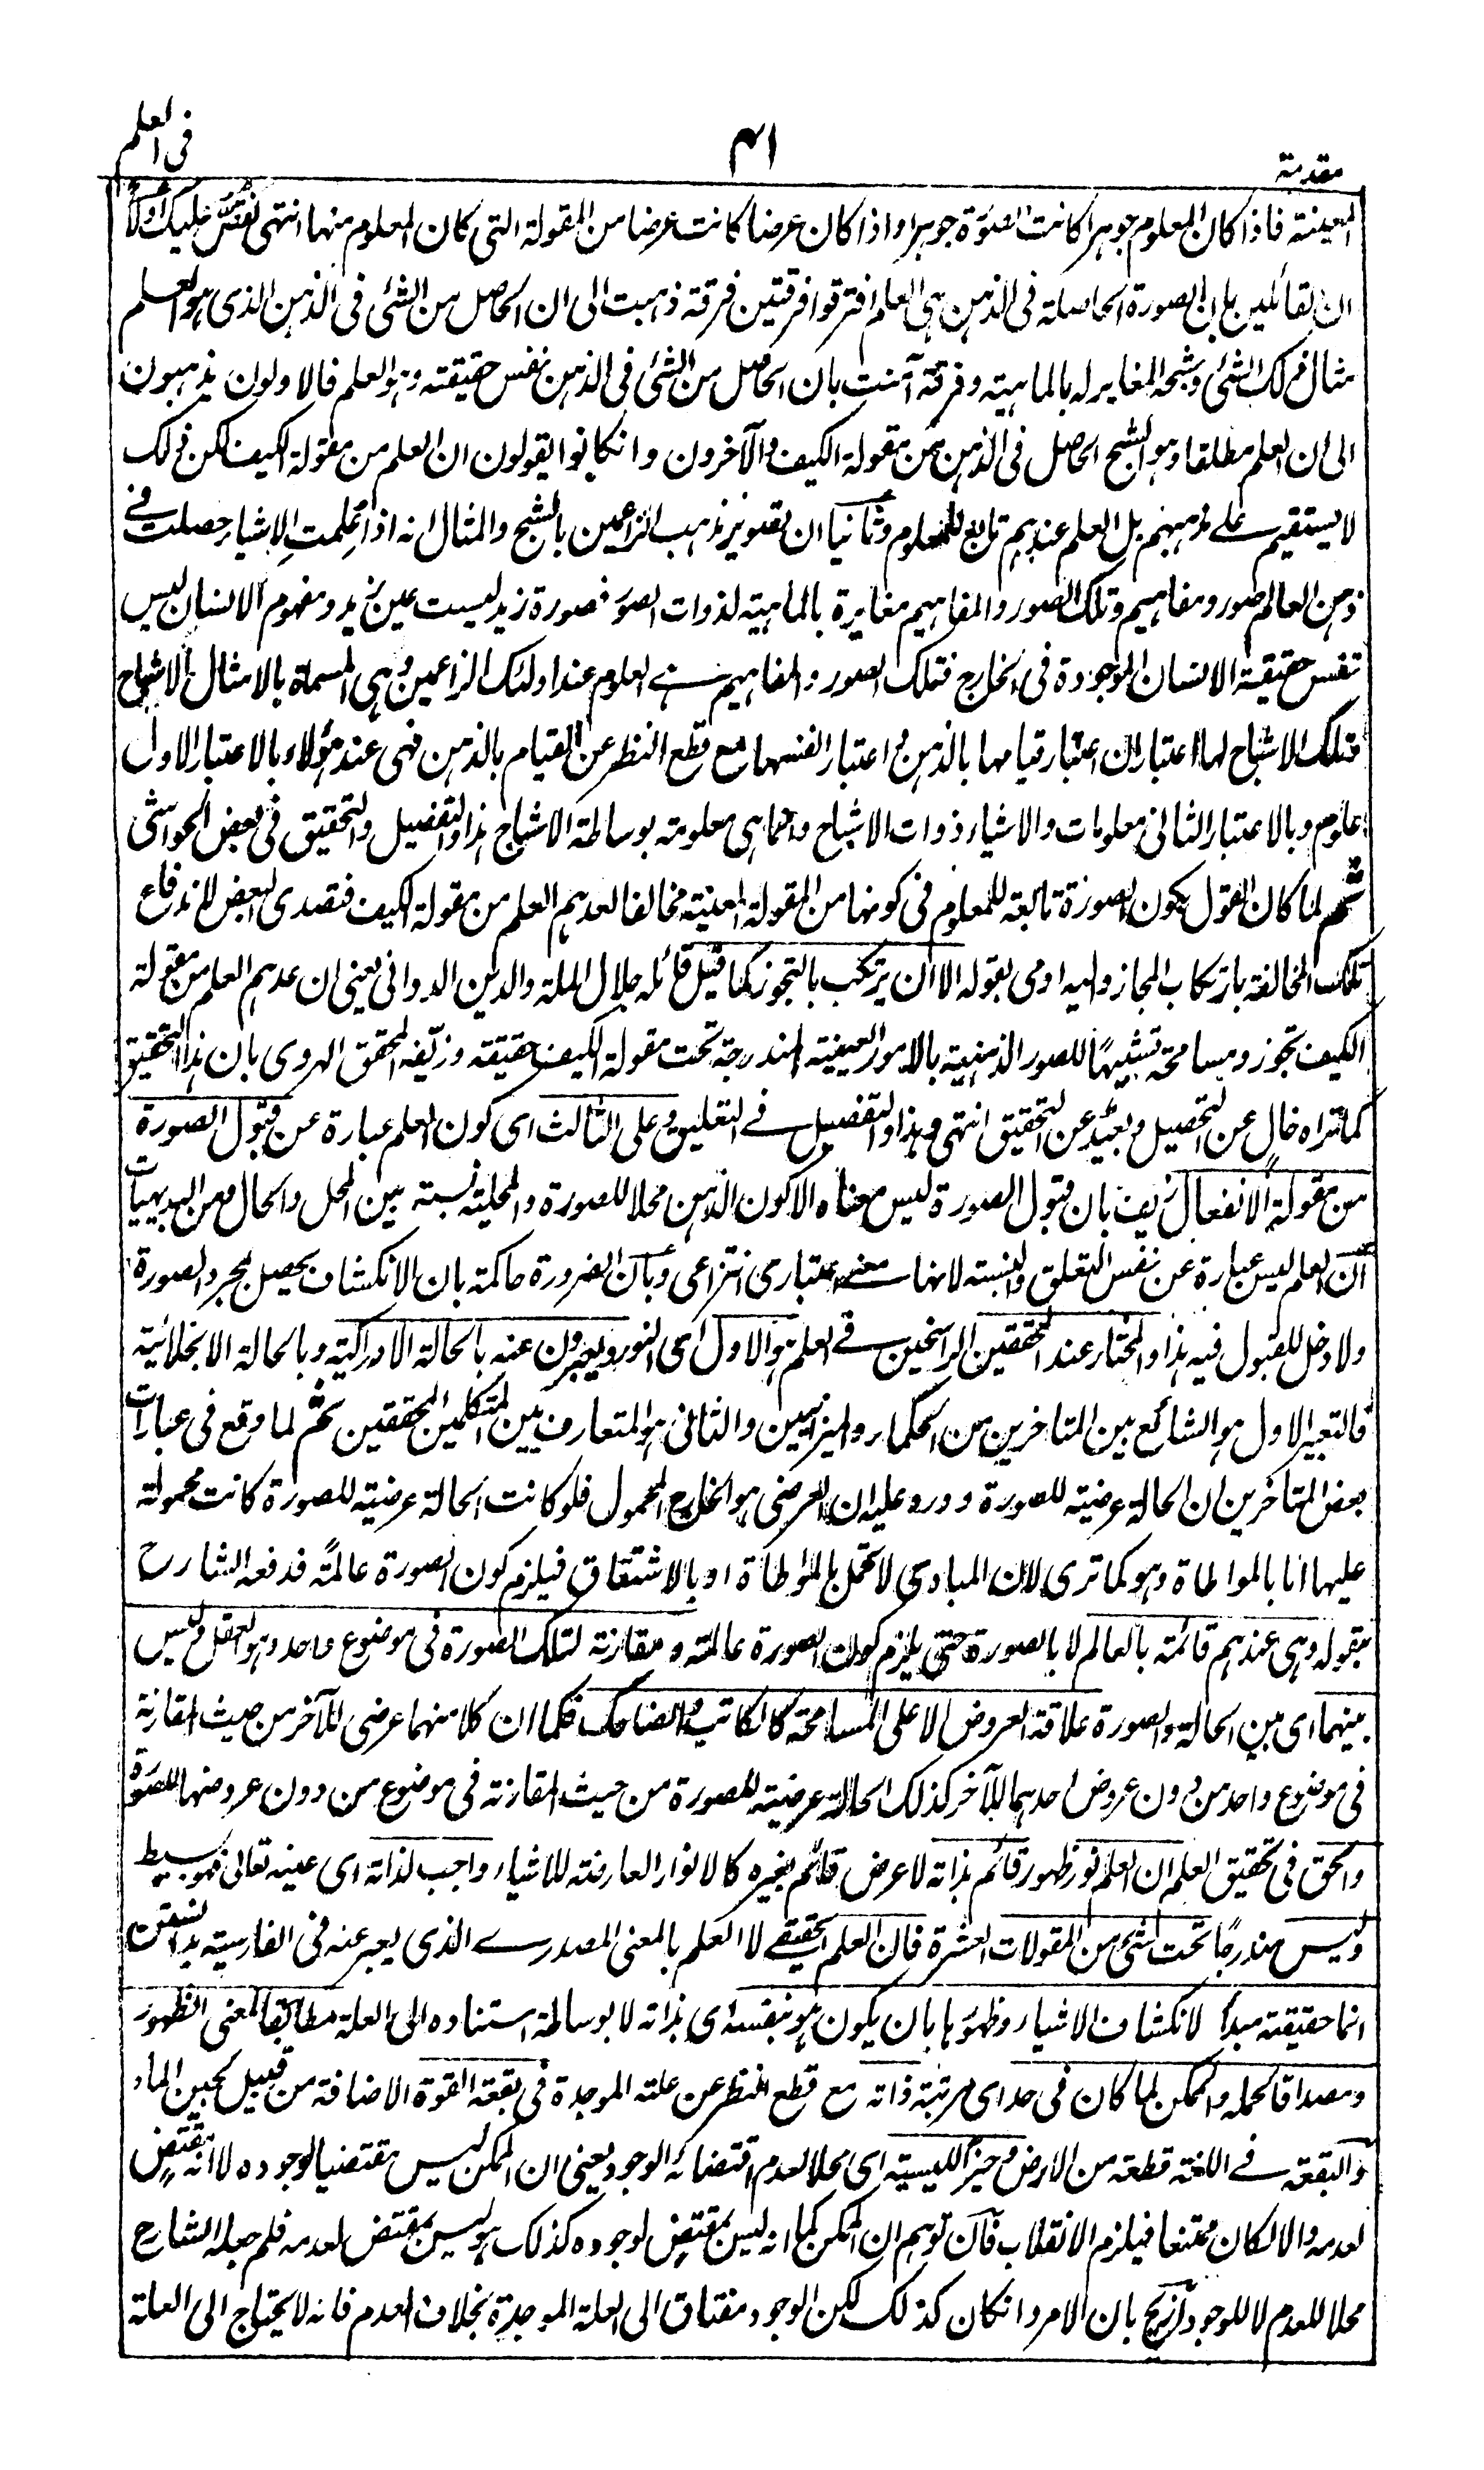 مقدمة
٤١
فى العلم
المعينة فاذا كان المعلوم جوهرا كانت الصورة جوهرا واذا كان عرضا كانت عرضا من المقولة التى كان المعلوم منها انتهى نقص عليك اولا
ان القائلين بان الصورة الحاصلة فى الذهن هى العلم افترقوا فرقتين فرقة ذهبت الى ان الحاصل من الشئ فى الذهن الذى هو العلم
مثال ذلك الشئ وشبحه المغاير له بالماهية وفرقة آمنت بان الحاصل من الشئ فى الذهن نفس حقيقته وهو العلم فالاولون يذهبون
الى ان العلم مطلقا وهو الشبح الحاصل فى الذهن من مقولة الكيف والآخرون وانكانوا يقولون ان العلم من مقولة الكيف لكن ذلك
لا يستقيم على مذهبهم بل العلم عندهم تابع للمعلوم وثانيا ان تصوير مذهب الزاعمين بالشبح والمثال انه اذا عُلِمتِ الاشياء حصلت فى
ذهن العالم صور ومفاهيم وتلك الصور والمفاهيم مغايرة بالماهية لذوات الصور فصورة زيد ليست عين زيد ومفهوم الانسان ليس
نفس حقيقة الانسان الموجودة فى الخارج فتلك الصور والمفاهيم هى العلوم عند اولئك الزاعمين وهى المسماة بالامثال والاشباح
فتلك الاشباح لها اعتباران اعتبار قيامها بالذهن واعتبار انفسها مع قطع النظر عن القيام بالذهن فهى عند هؤلاء بالاعتبار الاول
علوم وبالاعتبار الثانى معلومات والاشياء ذوات الاشباح وانما هى معلومة بوساطة الاشباح هذا والتفصيل والتحقيق فى بعض الحواشى
ثم لما كان القول بكون الصورة تابعة للمعلوم فى كونها من المقولة المعينة مخالفا لعدهم العلم من مقولة الكيف فتصدى البعض لاندفاع
تلك المخالفة بارتكاب المجاز واليه اومى بقوله الا ان يرتكب بالتجوز كما قيل قائله جلال الملة والدين الدوانى يعنى ان عدهم العلم من مقولة
الكيف تجوز ومسامحة تشبيهًا للصور الذهنية بالامور العينية المندرجة تحت مقولة الكيف حقيقة وزيّفه المحقق الهروى بان هذا التحقيق
كما تراه خالٍ عن التحصيل وبعيد عن التحقيق انتهى هذا والتفصيل فى التعليق وعلى الثالث اى كون العلم عبارة عن قبول الصورة
من مقولة الانفعال زيف بان قبول الصورة ليس معناه الا كون الذهن محلا للصورة والمحلية نسبة بين المحل والحال ومن البديهيات
ان العلم ليس عبارة عن نفس التعلق والنسبة لانها معنى اعتبارى انتزاعى وبان الضرورة حاكمة بان الانكشاف يحصل بمجرد الصورة
ولا دخل للقبول فيه هذا والمختار عند المحققين الراسخين فى العلم هو الاول اى النور ويعبرون عنه بالحالة الادراكية وبالحالة الانجلائية
فالتعبير الاول هو الشائع بين المتاخرين من الحكماء والميزانيين والثانى هو المتعارف بين المتكلمين المحققين ثم لما وقع فى عبارات
بعض المتاخرين ان الحالة عرضية للصورة وورد عليه ان العرضى هو الخارج المحمول فلو كانت الحالة عرضية للصورة كانت محمولة
عليها اما بالمواطاة وهو كما ترى لان المبادى لا تحمل بالمواطاة او بالاشتقاق فيلزم كون الصورة عالمةً فدفعه الشارح
بقوله وهى عندهم قائمة بالعالم لا بالصورة حتى يلزم كون الصورة عالمة ومقارنة لتلك الصورة فى موضوع واحد وهو العقل وليس
بينهما اى بين الحالة والصورة علاقة العروض الا على المسامحة كالكاتب والضاحك فكما ان كلا منهما عرضى للآخر من حيث المقارنة
فى موضوع واحد من دون عروض احدهما للآخر كذلك الحالة عرضية للصورة من حيث المقارنة فى موضوع من دون عروضها للصورة
والحق فى تحقيق العلم ان العلم نور ظهور قائم بذاته لا عرض قائم بغيره كالانوار العارضة للاشياء واجب لذاته اى عينه تعالى فهو بسيط
وليس مندرجًا تحت شئ من المقولات العشرة فان العلم الحقيقى لا العلم بالمعنى المصدرى الذى يعبر عنه فى الفارسية بدانستن
انما حقيقته مبدأ لانكشاف الاشياء وظهورها بان يكون هو بنفسه اى بذاته لا بوساطة استناده الى العلة مطابقا لمعنى الظهور
ومصداقا لحمله والممكن لما كان فى حد اى مرتبة ذاته مع قطع النظر عن علته الموجدة فى بقعة القوة الاضافة من قبيل لجين الماء
والبقعة فى اللغة قطعة من الارض وحيز الليسية اى محلا لعدم اقتضائه الوجود يعنى ان الممكن ليس مقتضيا لوجوده لا انه مقتضٍ
لعدمه والا لكان ممتنعا فيلزم الانقلاب فان توهم ان الممكن كما انه ليس بمقتضٍ لوجوده كذلك هو ليس بمقتض لعدمه فلم جعله الشارح
محلا للعدم لا للوجود ازيح بان الامر وانكان كذلك لكن الوجود مفتاق الى العلة الموجدة بخلاف العدم فانه لا يحتاج الى العلة